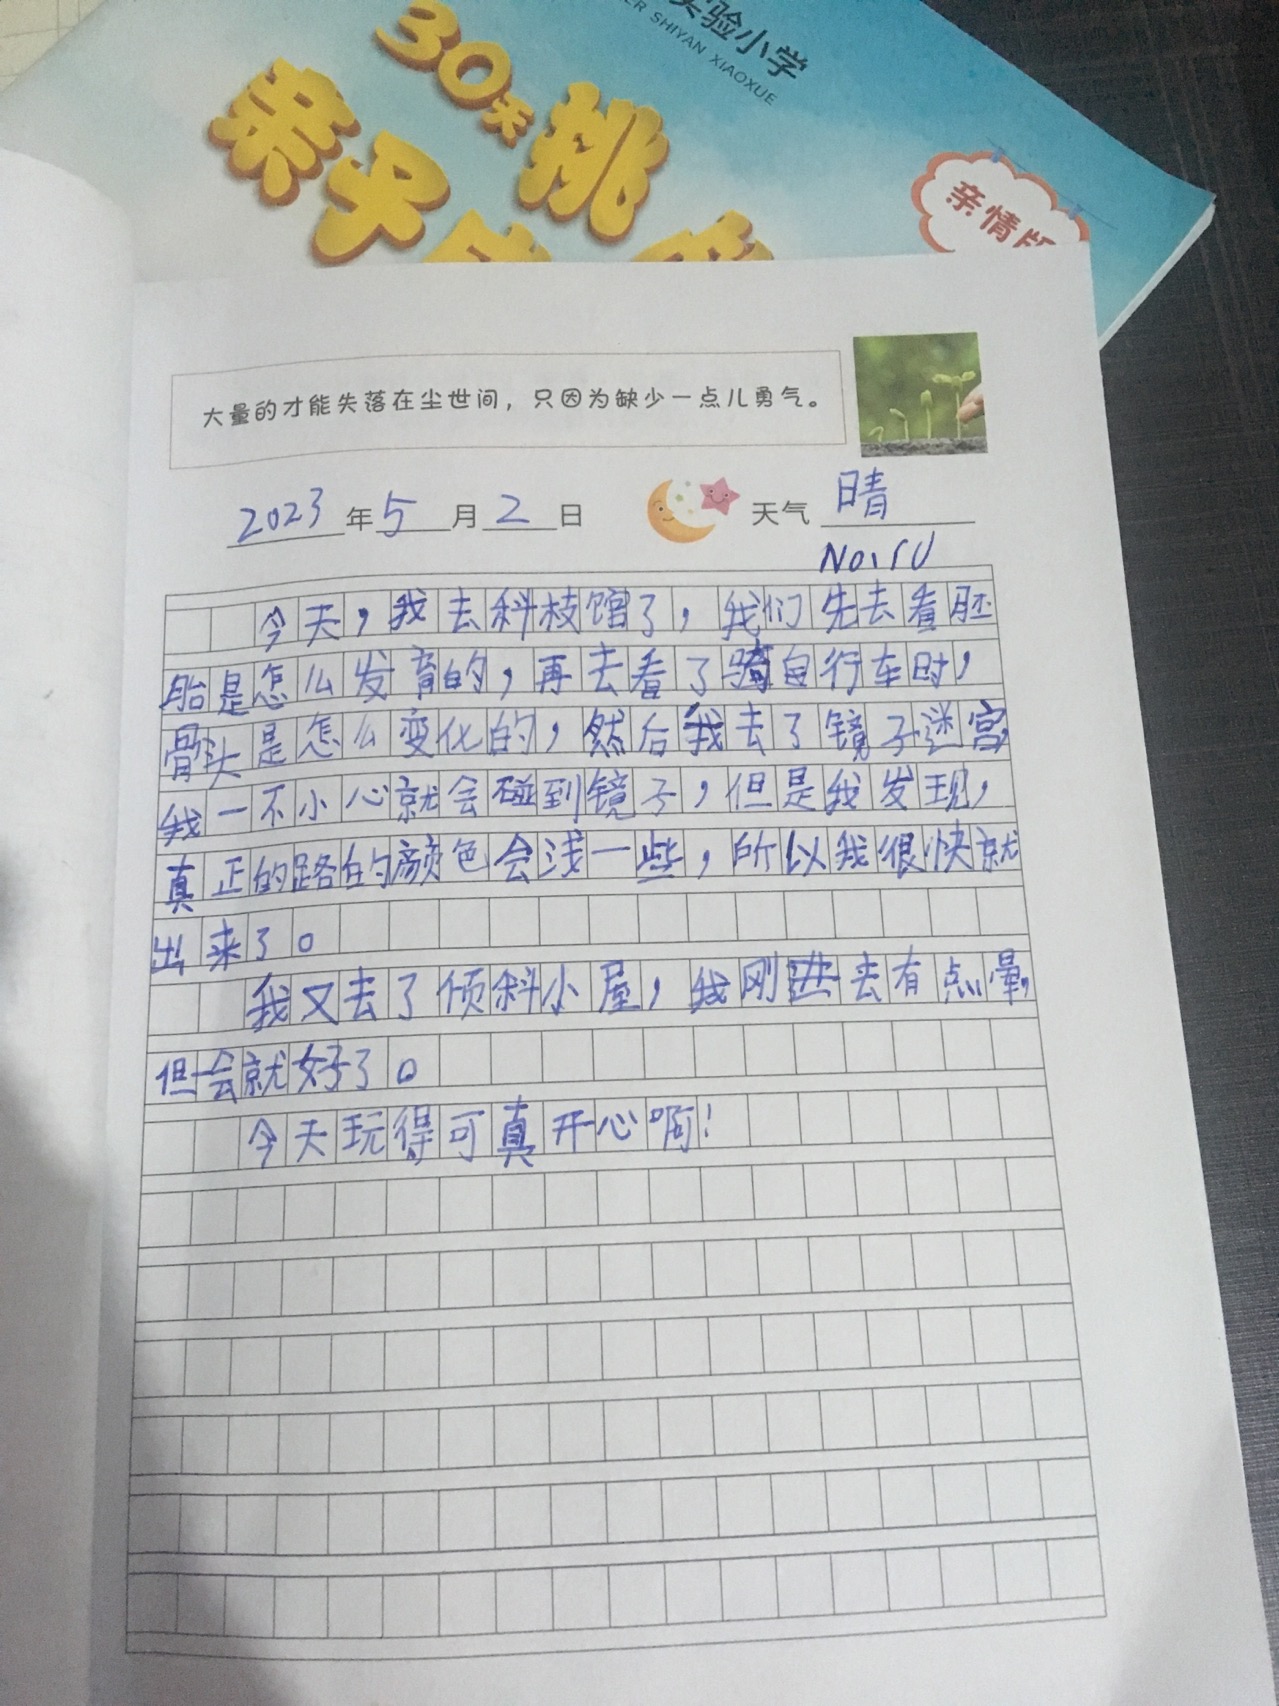 实验小学
ER SHIYAN XIAOXUE
30天挑
亲子
亲情版
大量的才能失落在尘世间，只因为缺少一点儿勇气。
2023年5月2日 天气 晴
今天，我去科枝馆了，我们先去看胚
胎是怎么发育的，再去看了骑自行车时，
骨头是怎么变化的，然后我去了镜子迷宫，
我一不小心就会碰到镜子，但是我发现，
真正的路的颜色会浅一些，所以我很快就
出来了。
我又去了倾科小屋，我刚进去有点晕，
但一会就好了。
今天玩得可真开心啊！